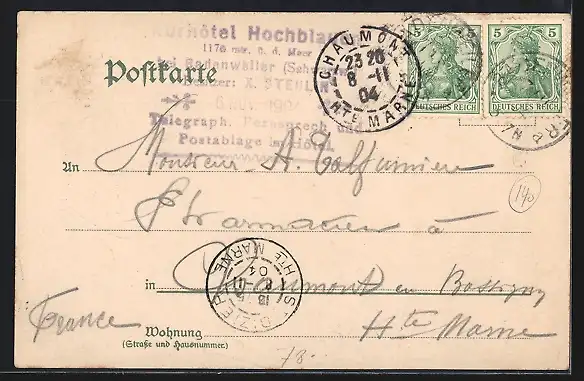 Kurhôtel Hochblauen
1176 mtr. ü. d. Meer
bei Badenweiler
Besitzer: K.
6. NOV. 1904
Telegraph. Fernsprech. und
Postablage im Hôtel.
CHAUMONT
23 20
8 -11
04
HTE MARNE
5 5
DEUTSCHES REICH DEUTSCHES REICH
Postkarte
An Monsieur A.
à
140
in Chaumont en Bassigny
ST DIZIER
HTE MARNE
04
France
Hte Marne
Wohnung
(Straße und Hausnummer)
78.